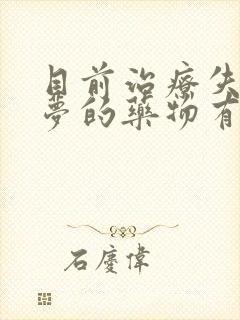 目前治療失
夢的藥物有
石慶偉